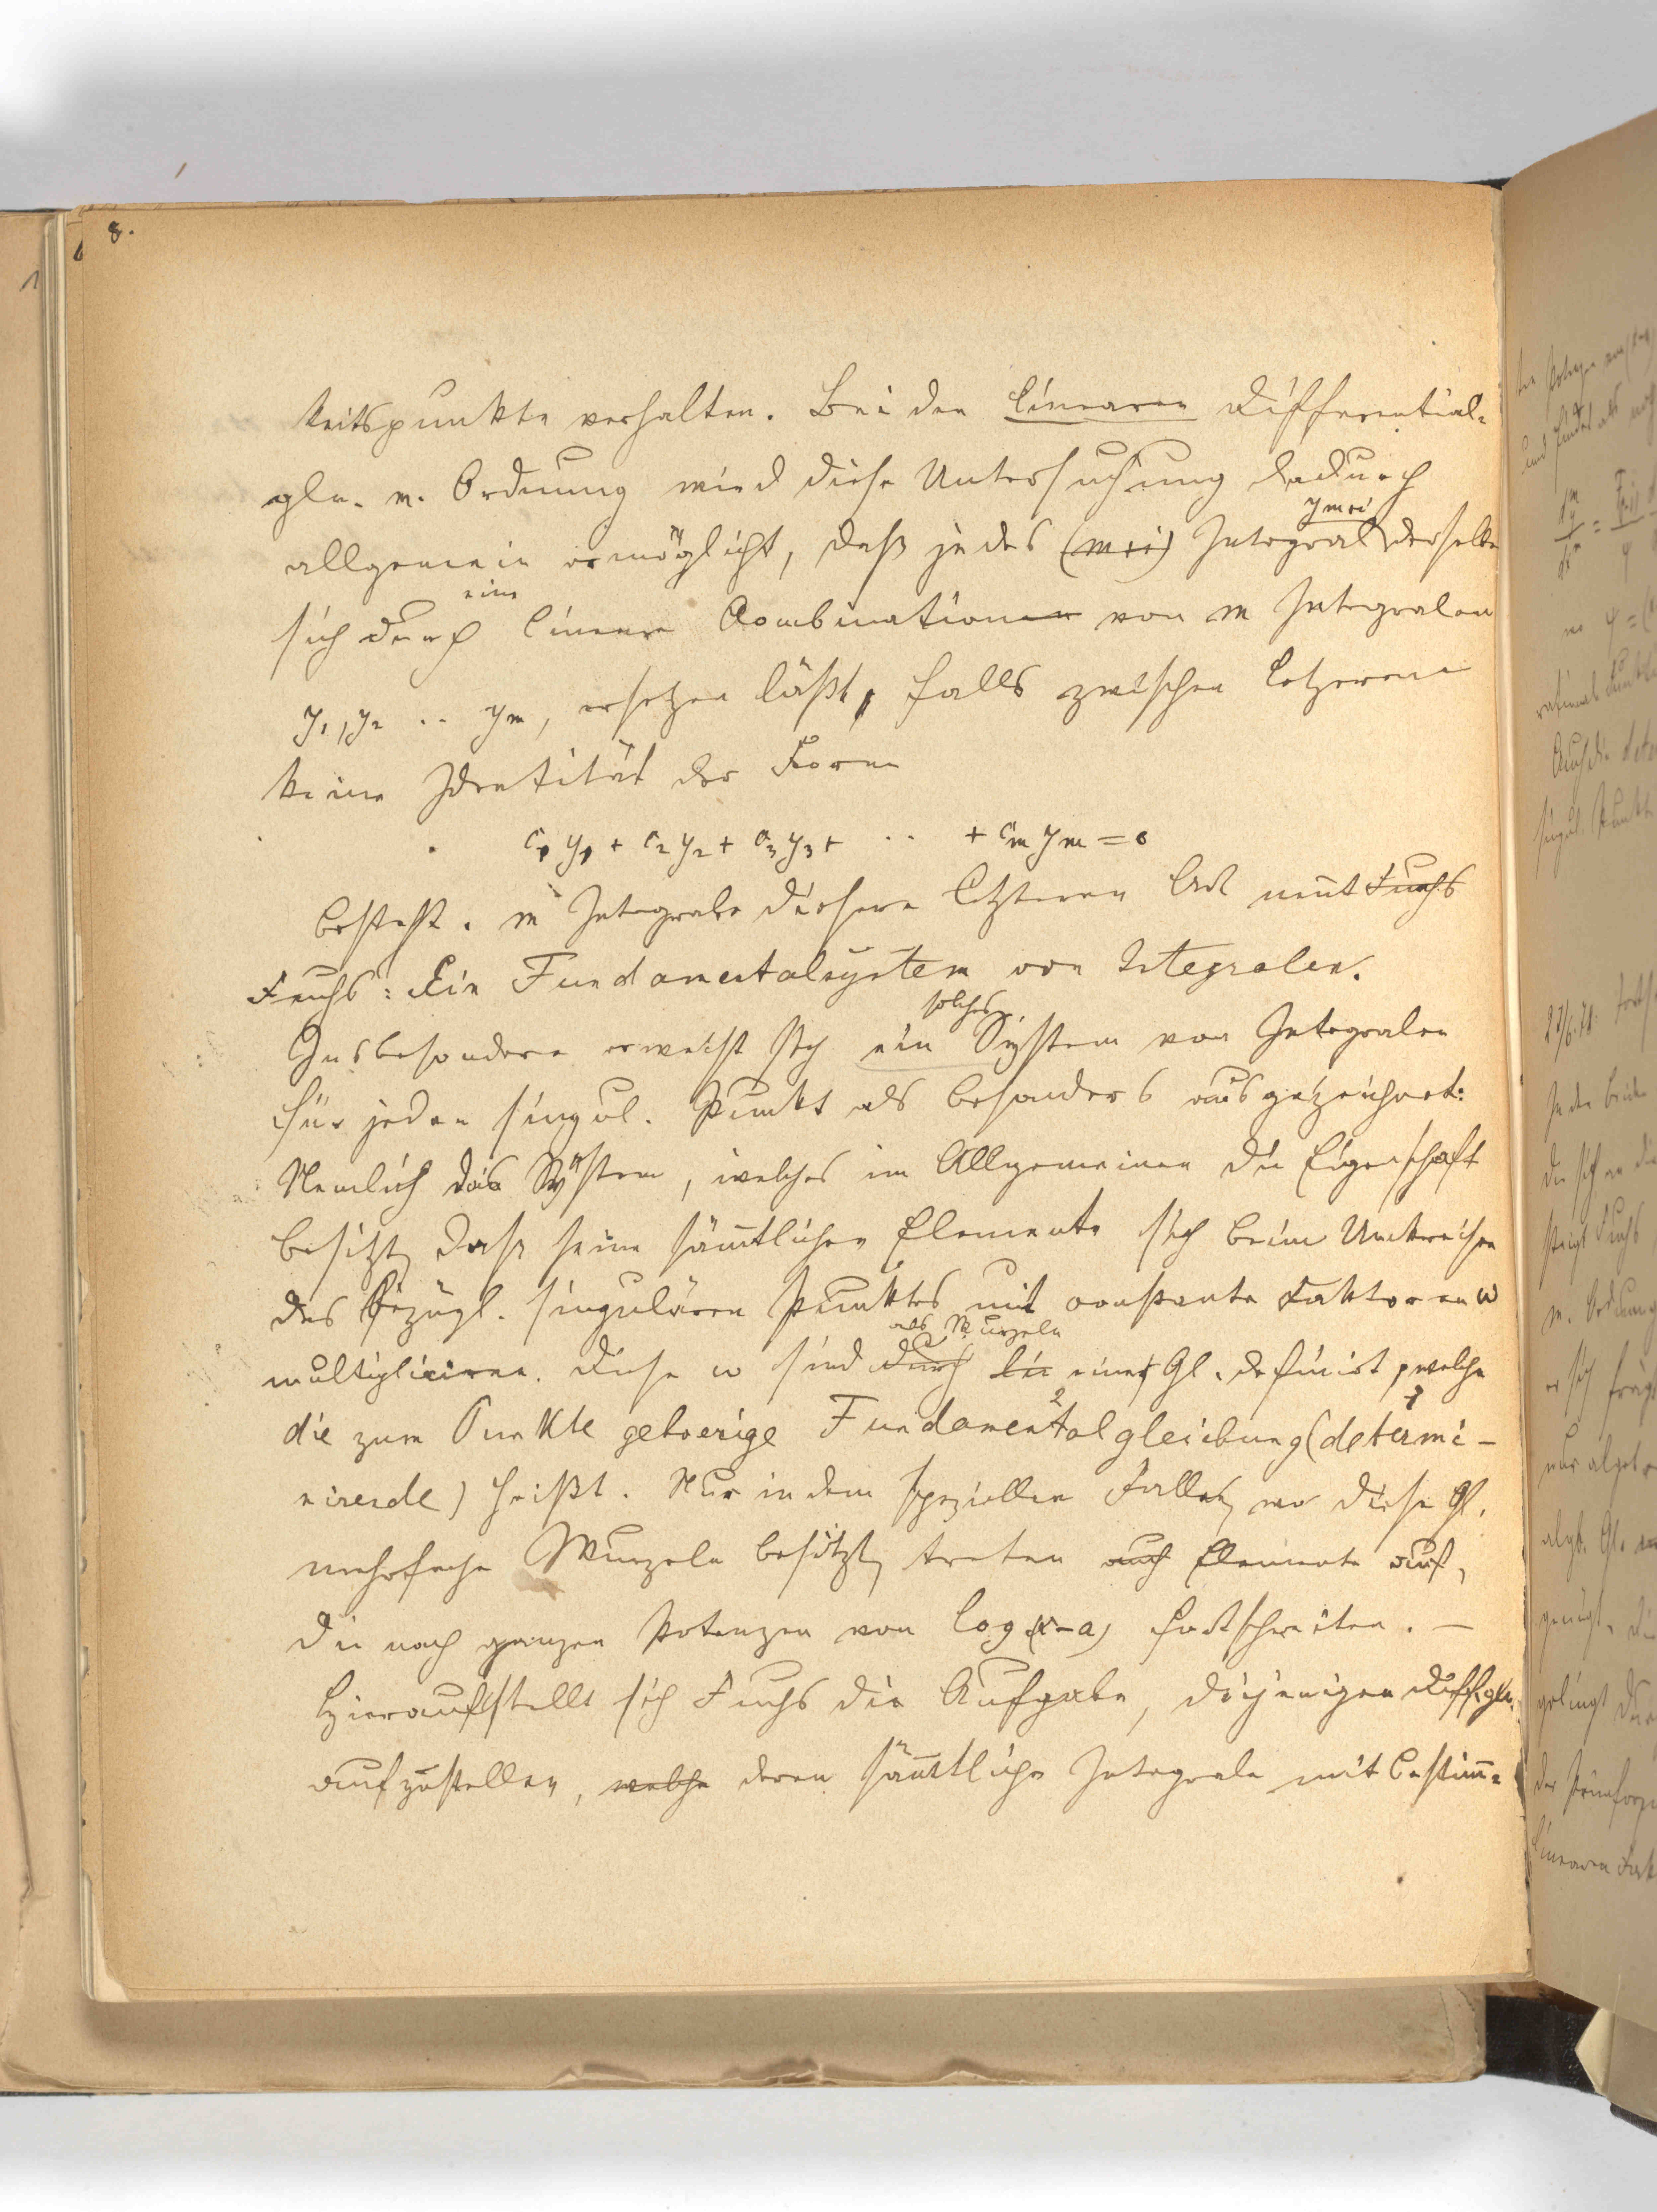 8.
keitspunkte verhalten. Bei den linearen Differential-
gln. m. Ordnung wird diese Untersuchung dadurch
allgemein ermöglicht, daß jedes (m+i) Integral ym+i derselben
sich durch eine lineare Combinationen von m Integralen
y1, y2 .. ym, ersetzen läßt, falls zwischen letzeren
keine Identität der Form
c1 y1 + c2 y2 + c3 y3 + .. + cm ym = 0
besteht. m Integrale dieser letzteren Art nennt Fuchs
Fuchs: Ein Fundamentalsystem von Integralen.
Insbesondere erweist sich ein solches System von Integralen
für jeden singul. Punkt als besonders ausgezeichnet:
Nemlich das System, welches im Allgemeinen die Eigenschaft
besitzt, dass seine sämtlichen Elemente sich beim Umkreisen
des bezügl. singulären Punktes mit constante Faktoren w
multipliciren. Diese w sind durch als Wurzeln einer Gl. definirt, welche
die zum Punkte gehoerige Fundamentalgleichung (determi-
nirende) heißt. Nur in dem speziellen Falle, wo diese Gl.
mehrfache Wurzeln besitzt, treten auch Elemente auf,
die nach ganzen Potenzen von log(x-a) fortschreiten. —
Hierauf stellt sich Fuchs die Aufgabe, diejenigen Diffgln.
aufzustellen, welche deren sämtliche Integrale mit bestimm-